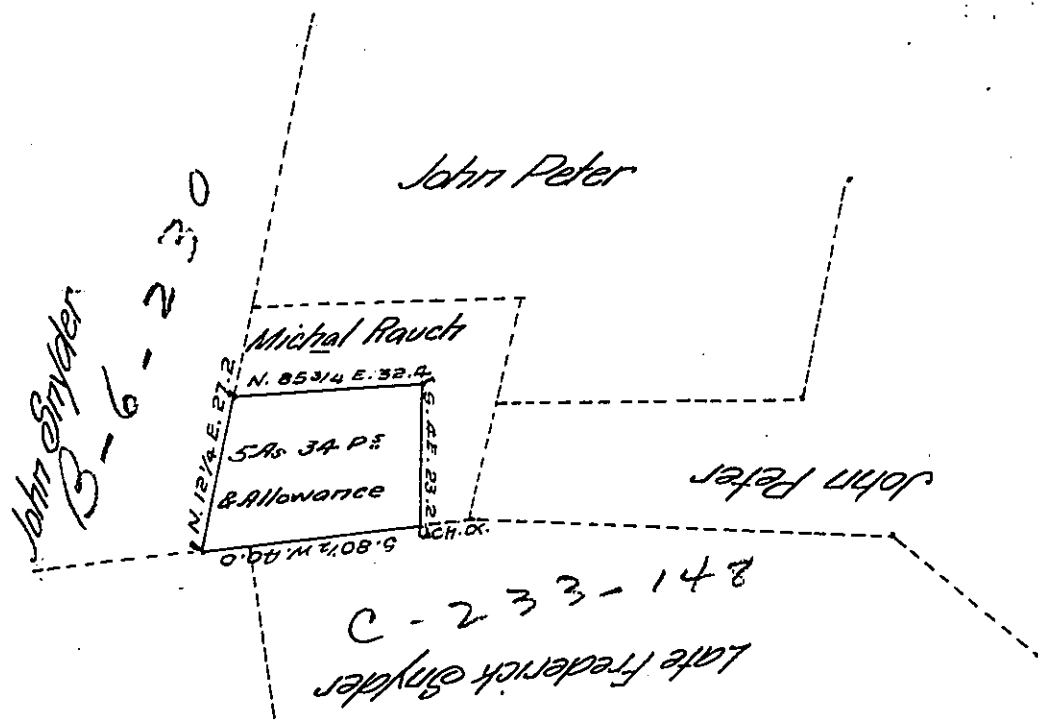 John Peter
John Snyder
B-6-230
Michal Rauch
N. 85 3/4 E. 32.4
N. 12 1/4 E. 27.2
S. 4 E. 23.2
5 As 34 Ps
& Allowance
S. 80 1/2 W. 40.0
CH. OK.
John Peter
C-233-148
Late Frederick Snyder